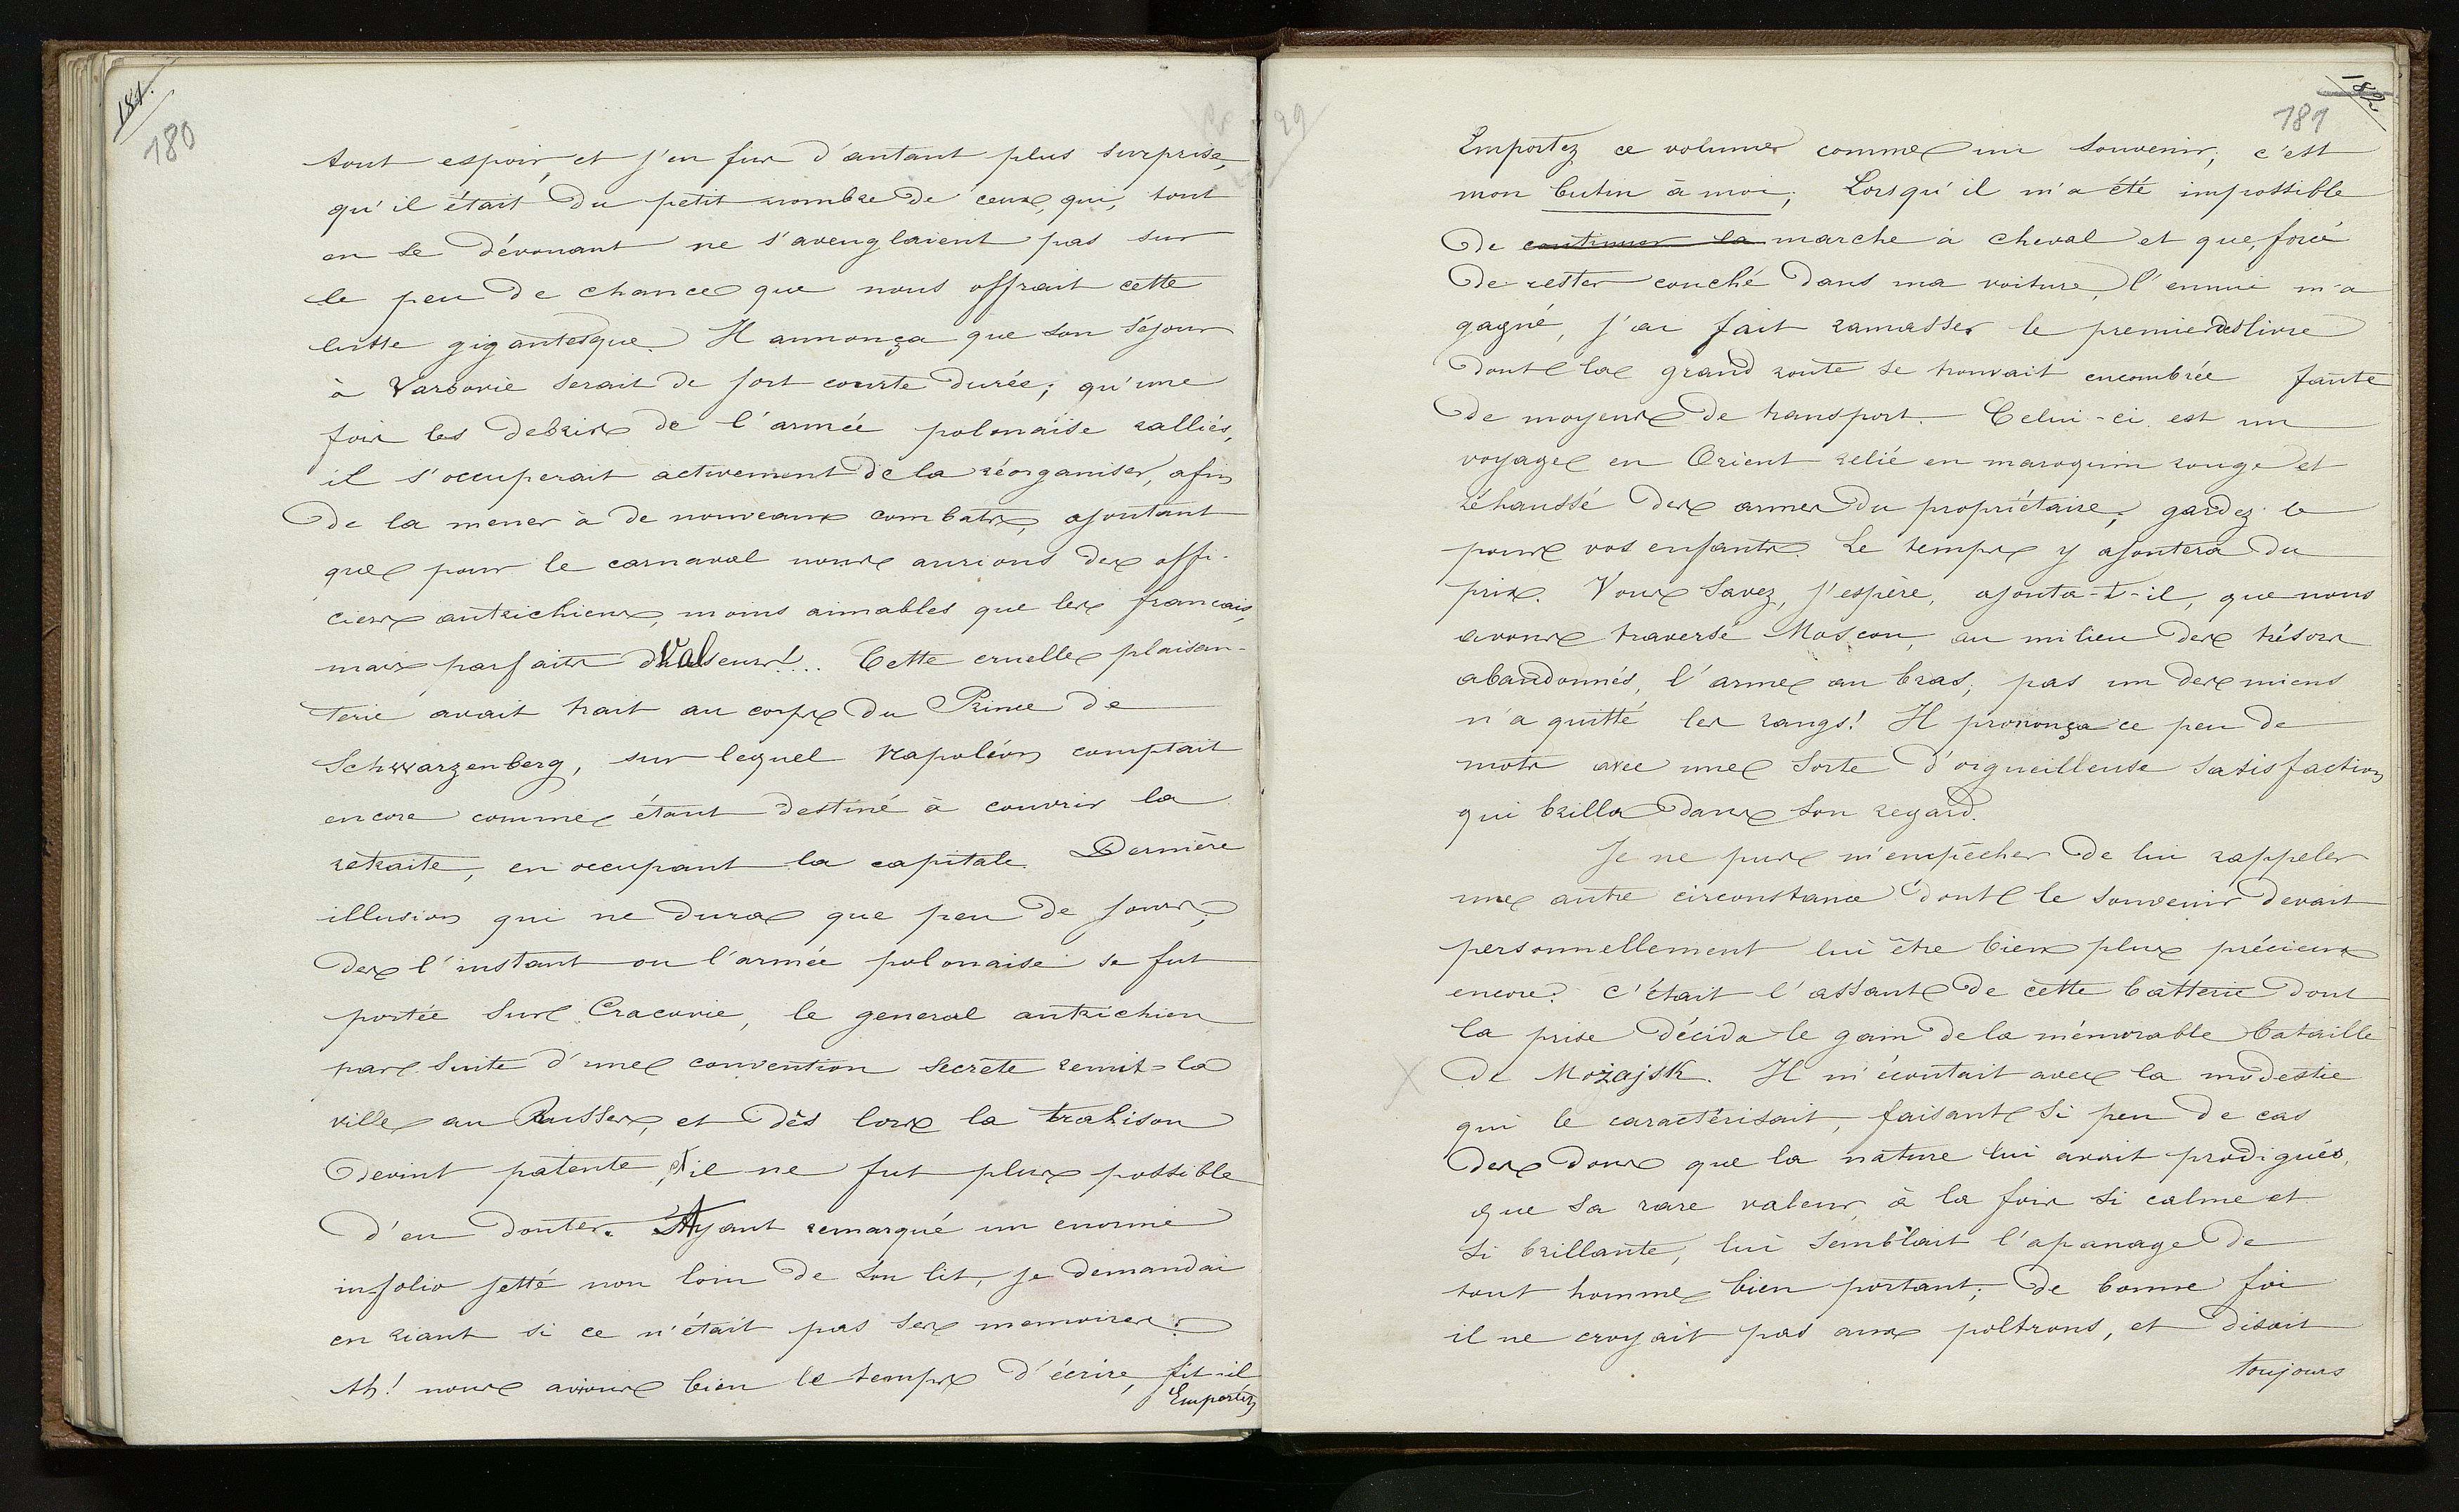 181.
180
tout espoir, et j'en fus d'autant plus surprise,
qu'il était du petit nombre de ceux, qui, tout
en se dévouant ne s'aveuglaient pas sur
le peu de chance que nous offrait cette
lutte gigantesque. Il annonça que son séjour
à Varsovie serait de fort courte durée; qu'une
fois les debris de l'armée polonaise ralliés,
il s'occuperait activement de la réorganiser, afin
de la mener à de nouveaux combats, ajoutant
que pour le carnaval nous aurions des offi-
ciers autrichiens, moins aimables que les francais,
mais parfaits valseurs!.. Cette cruelle plaisan-
terie avait trait au corps du Prince de
Schwarzenberg, sur lequel Napoléon comptait
encore comme étant destiné à couvrir la
retraite, en occupant la capitale. Dernière
illusion qui ne dura que peu de jours,
des l'instant ou l'armée polonaise se fut
portée sur Cracovie, le general autrichien
par suite d'une convention secrète remit la
ville au Russes, et dès lors la trahison
devint patente, il ne fut plus possible
d'en douter. Ayant remarqué un enorme
in-folio jetté non loin de son lit, je demandai
en riant si ce n'était pas ses memoires?
Ah! nous avions bien le temps d'écrire, fit-il
Emportez
29
182
181
Emportez ce volume comme un souvenir, c'est
mon butin à moi; Lorsqu'il m'a été impossible
de continuer la marche à cheval et que, forcé
de rester couché dans ma voiture, l'ennui m'a
gagné, j'ai fait ramasser le premier des livre
dont la grand route se trouvait encombrée faute
de moyens de transport. Celui-ci est un
voyage en Orient relié en maroquin rouge et
réhaussé des armes du propriétaire; gardez le
pour vos enfants. Le temps y ajoutera du
prix. Vous savez, j'espère, ajouta-t-il, que nous
avons traversé Moscou, au milieu des trésors
abandonnés, l'arme au bras; pas un des miens
n'a quitté les rangs! Il prononça ce peu de
mots avec une sorte d'orgueilleuse satisfaction
qui brilla dans son regard.
Je ne pus m'empêcher de lui rappeler
une autre circonstance dont le souvenir devait
personnellement lui être bien plus précieux
encore: c'était l'assaut de cette batterie dont
la prise décida le gain de la mémorable bataille
de Możajsk. Il m'écoutait avec la modestie
qui le caractérisait, faisant si peu de cas
des dons que la nature lui avait prodigués,
que sa rare valeur, à la fois si calme et
si brillante, lui semblait l'apanage de
tout homme bien portant; de bonne foi
il ne croyait pas aux poltrons, et disait
toujours